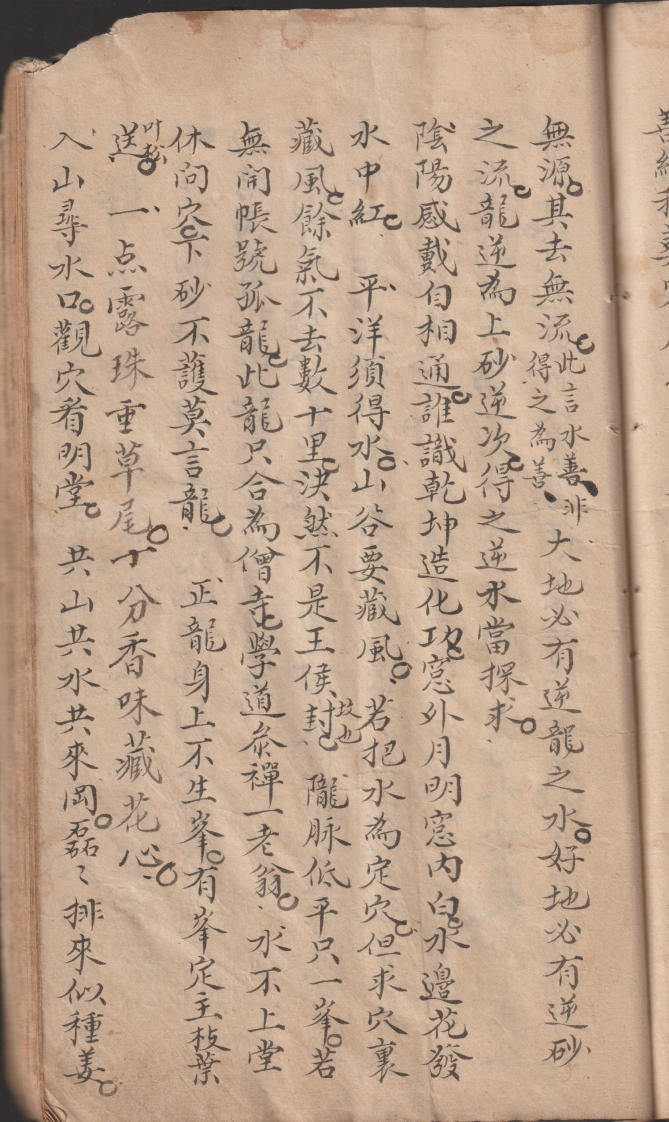 無源其去無流此言水善非得之為善大地必有逆龍之水好地必有逆砂
之流龍逆為上砂逆次得之逆水當探求
陰陽感戴自相通誰識乾坤造化功窓外月明窓内白水邊花發
水中紅 平洋須得水山谷要藏風 若把水為定穴但求穴裏
藏風餘氣不去數十里決然不是王侯封坟也 隴脉低平只一峯若
無開帳號孤龍此龍只合為僧寺學道叅禪一老翁 水不上堂
休问穴下砂不護莫言龍 正龍身上不生峯有峯定主枝葉
送叶松 一点露珠垂草尾十分香味藏花心
入山尋水口觀穴看明堂 共山共水共來岡磊〻排來似種姜